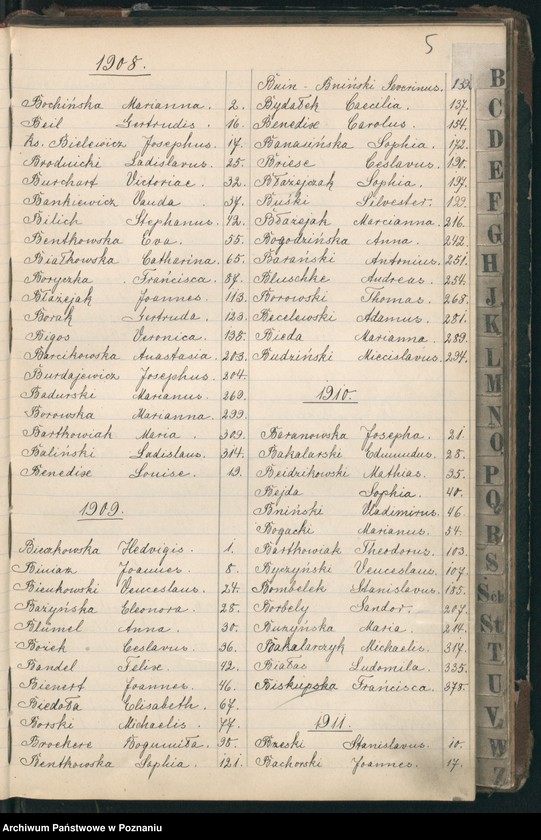 5
1908.
Bochińska Marianna. 2.
Beil Gertrudis. 16.
ks. Bielewicz Josephus. 17.
Broduicki Ladislavus. 25.
Burchart Victoriae. 32.
Bankiewicz Vanda. 37.
Bilich Stephanus. 42.
Bentkowska Eva. 55.
Białkowska Catharina. 65.
Boryczka Francisca. 87.
Błażejak Joannes. 113.
Borak Gertruda. 123.
Bigos Veronica. 138.
Barcikowska Anastasia. 203.
Burdajewicz Josephus. 204.
Badurski Marianus. 269.
Borowska Marianna. 299.
Bartkowiak Maria. 309.
Baliński Ladislaus. 314.
Benedixe Louise. 19.
1909.
Hedvigis. 1.
Joannes. 5.
Bienkowski Venceslaus. 24.
Bażyńska Eleonora. 28.
Blümel Anna. 30.
Bożek Ceslavus. 36.
Bendel Felix. 42.
Bienert Joannes. 46.
Biedoła Elisabeth. 67.
Borski Michaelis. 77.
Broekere Bogumiła. 98.
Bentkowska Sophia. 121.
Buin - Bniński Severinus.
Bydałek Caecilia. 137.
Benedixe Carolus. 154.
Banasińska Sophia. 172.
Briese Ceslavus. 190.
Błażejczak Sophia. 197.
Buśki Silvester. 199.
Błażejak Marcianna. 216.
Bogodzińska Anna. 242.
Barański Antonius. 251.
Bluschke Andreas. 254.
Borowski Thomas. 268.
Becelewski Adamus. 281.
Bieda Marianna. 289.
Budziński Miecislavus. 294.
1910.
Baranowska Josepha. 21.
Bakalarski Edmundus. 28.
Beidzikowski Mathias. 35.
Bejda Sophia. 40.
Bniński Vladimirus. 46.
Bogacki Marianus. 54.
Bartkowiak Theodorus. 103.
Byczyński Venceslaus. 107.
Bombelek Stanislavus. 185.
Borbely Sandor. 207.
Buzyńska Maria. 214.
Bakalarczyk Michaelis. 317.
Białas Ludomila. 335.
Biskupska Francisca. 378.
1911.
Brzeski Stanislavus. 10.
Bachorski Joannes. 17.
B
C
D
E
F
G
H
J
K
L
M
N
O
P
Q
R
S
Sch
St
T
U
V
W
Z
Archiwum Państwowe w Poznaniu